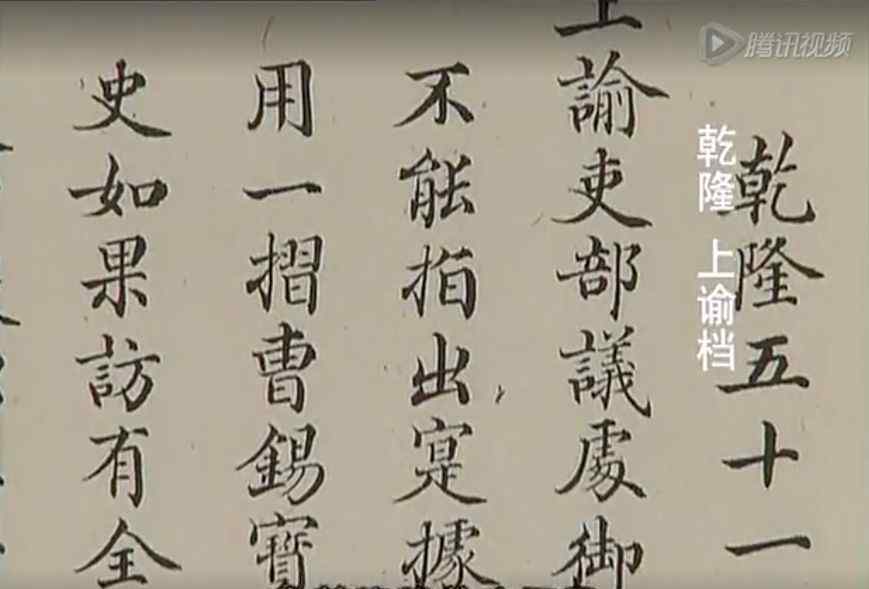 腾讯视频
乾隆五十一
乾隆 上谕档
上諭吏部議處御
不能指出寔據
用一摺曹錫寶
史如果訪有全